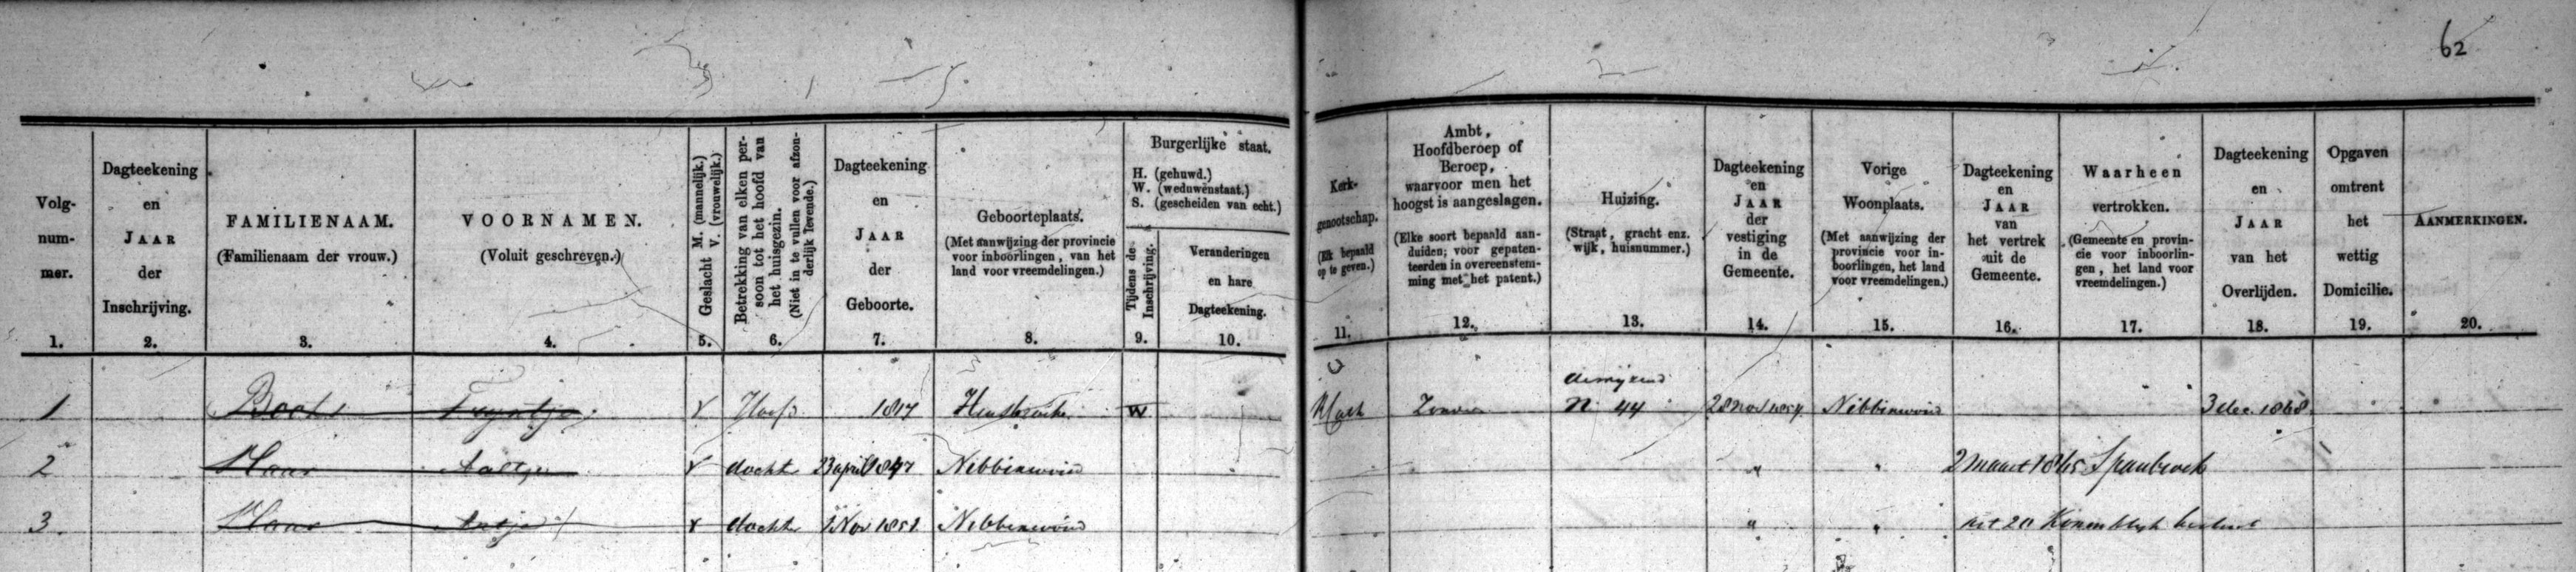 62
Volg-
num-
mer.
1.
Dagteekening
en
JAAR
der
Inschrijving.
2.
FAMILIENAAM.
(Familienaam der vrouw.)
3.
VOORNAMEN.
(Voluit geschreven.)
4.
Geslacht M. (mannelijk.)
V. (vrouwelijk.)
5.
Betrekking van elken per-
soon tot het hoofd van
het huisgezin.
(Niet in te vullen voor afzon-
derlijk levende.)
6.
Dagteekening
en
JAAR
der
Geboorte.
7.
Geboorteplaats.
(Met aanwijzing der provincie
voor inboorlingen, van het
land voor vreemdelingen.)
8.
Burgerlijke staat.
H. (gehuwd.)
W. (weduwenstaat.)
S. (gescheiden van echt.)
Tijdens de
Inschrijving.
9.
Veranderingen
en hare
Dagteekening.
10.
Kerk-
genootschap.
(Elk bepaald
op te geven.)
11.
Ambt,
Hoofdberoep of
Beroep,
waarvoor men het
hoogst is aangeslagen.
(Elke soort bepaald aan-
duiden; voor gepaten-
teerden in overeenstem-
ming met het patent.)
12.
Huizing.
(Straat, gracht enz.
wijk, huisnummer.)
13.
Dagteekening
en
JAAR
der
vestiging
in de
Gemeente.
14.
Vorige
Woonplaats.
(Met aanwijzing der
provincie voor in-
boorlingen, het land
voor vreemdelingen.)
15.
Dagteekening
en
JAAR
van
het vertrek
uit de
Gemeente.
16.
Waarheen
vertrokken.
(Gemeente en provin-
cie voor inboorlin-
gen, het land voor
vreemdelingen.)
17.
Dagteekening
en
JAAR
van het
Overlijden.
18.
Opgaven
omtrent
het
wettig
Domicilie.
19.
AANMERKINGEN.
20.
1 Trijntje V Hoofd 1817 Hensbroek W N 44 28 nov 1854 Nibbixwoud 3 dec. 1868
2 Haar Aaltje V docht 23 april 1847 Nibbixwoud " " 2 maart 1865 Spanbroek
3 Haar Antje V dochter Nov 1851 Nibbixwoud " " art 20 Koninklijk besluit